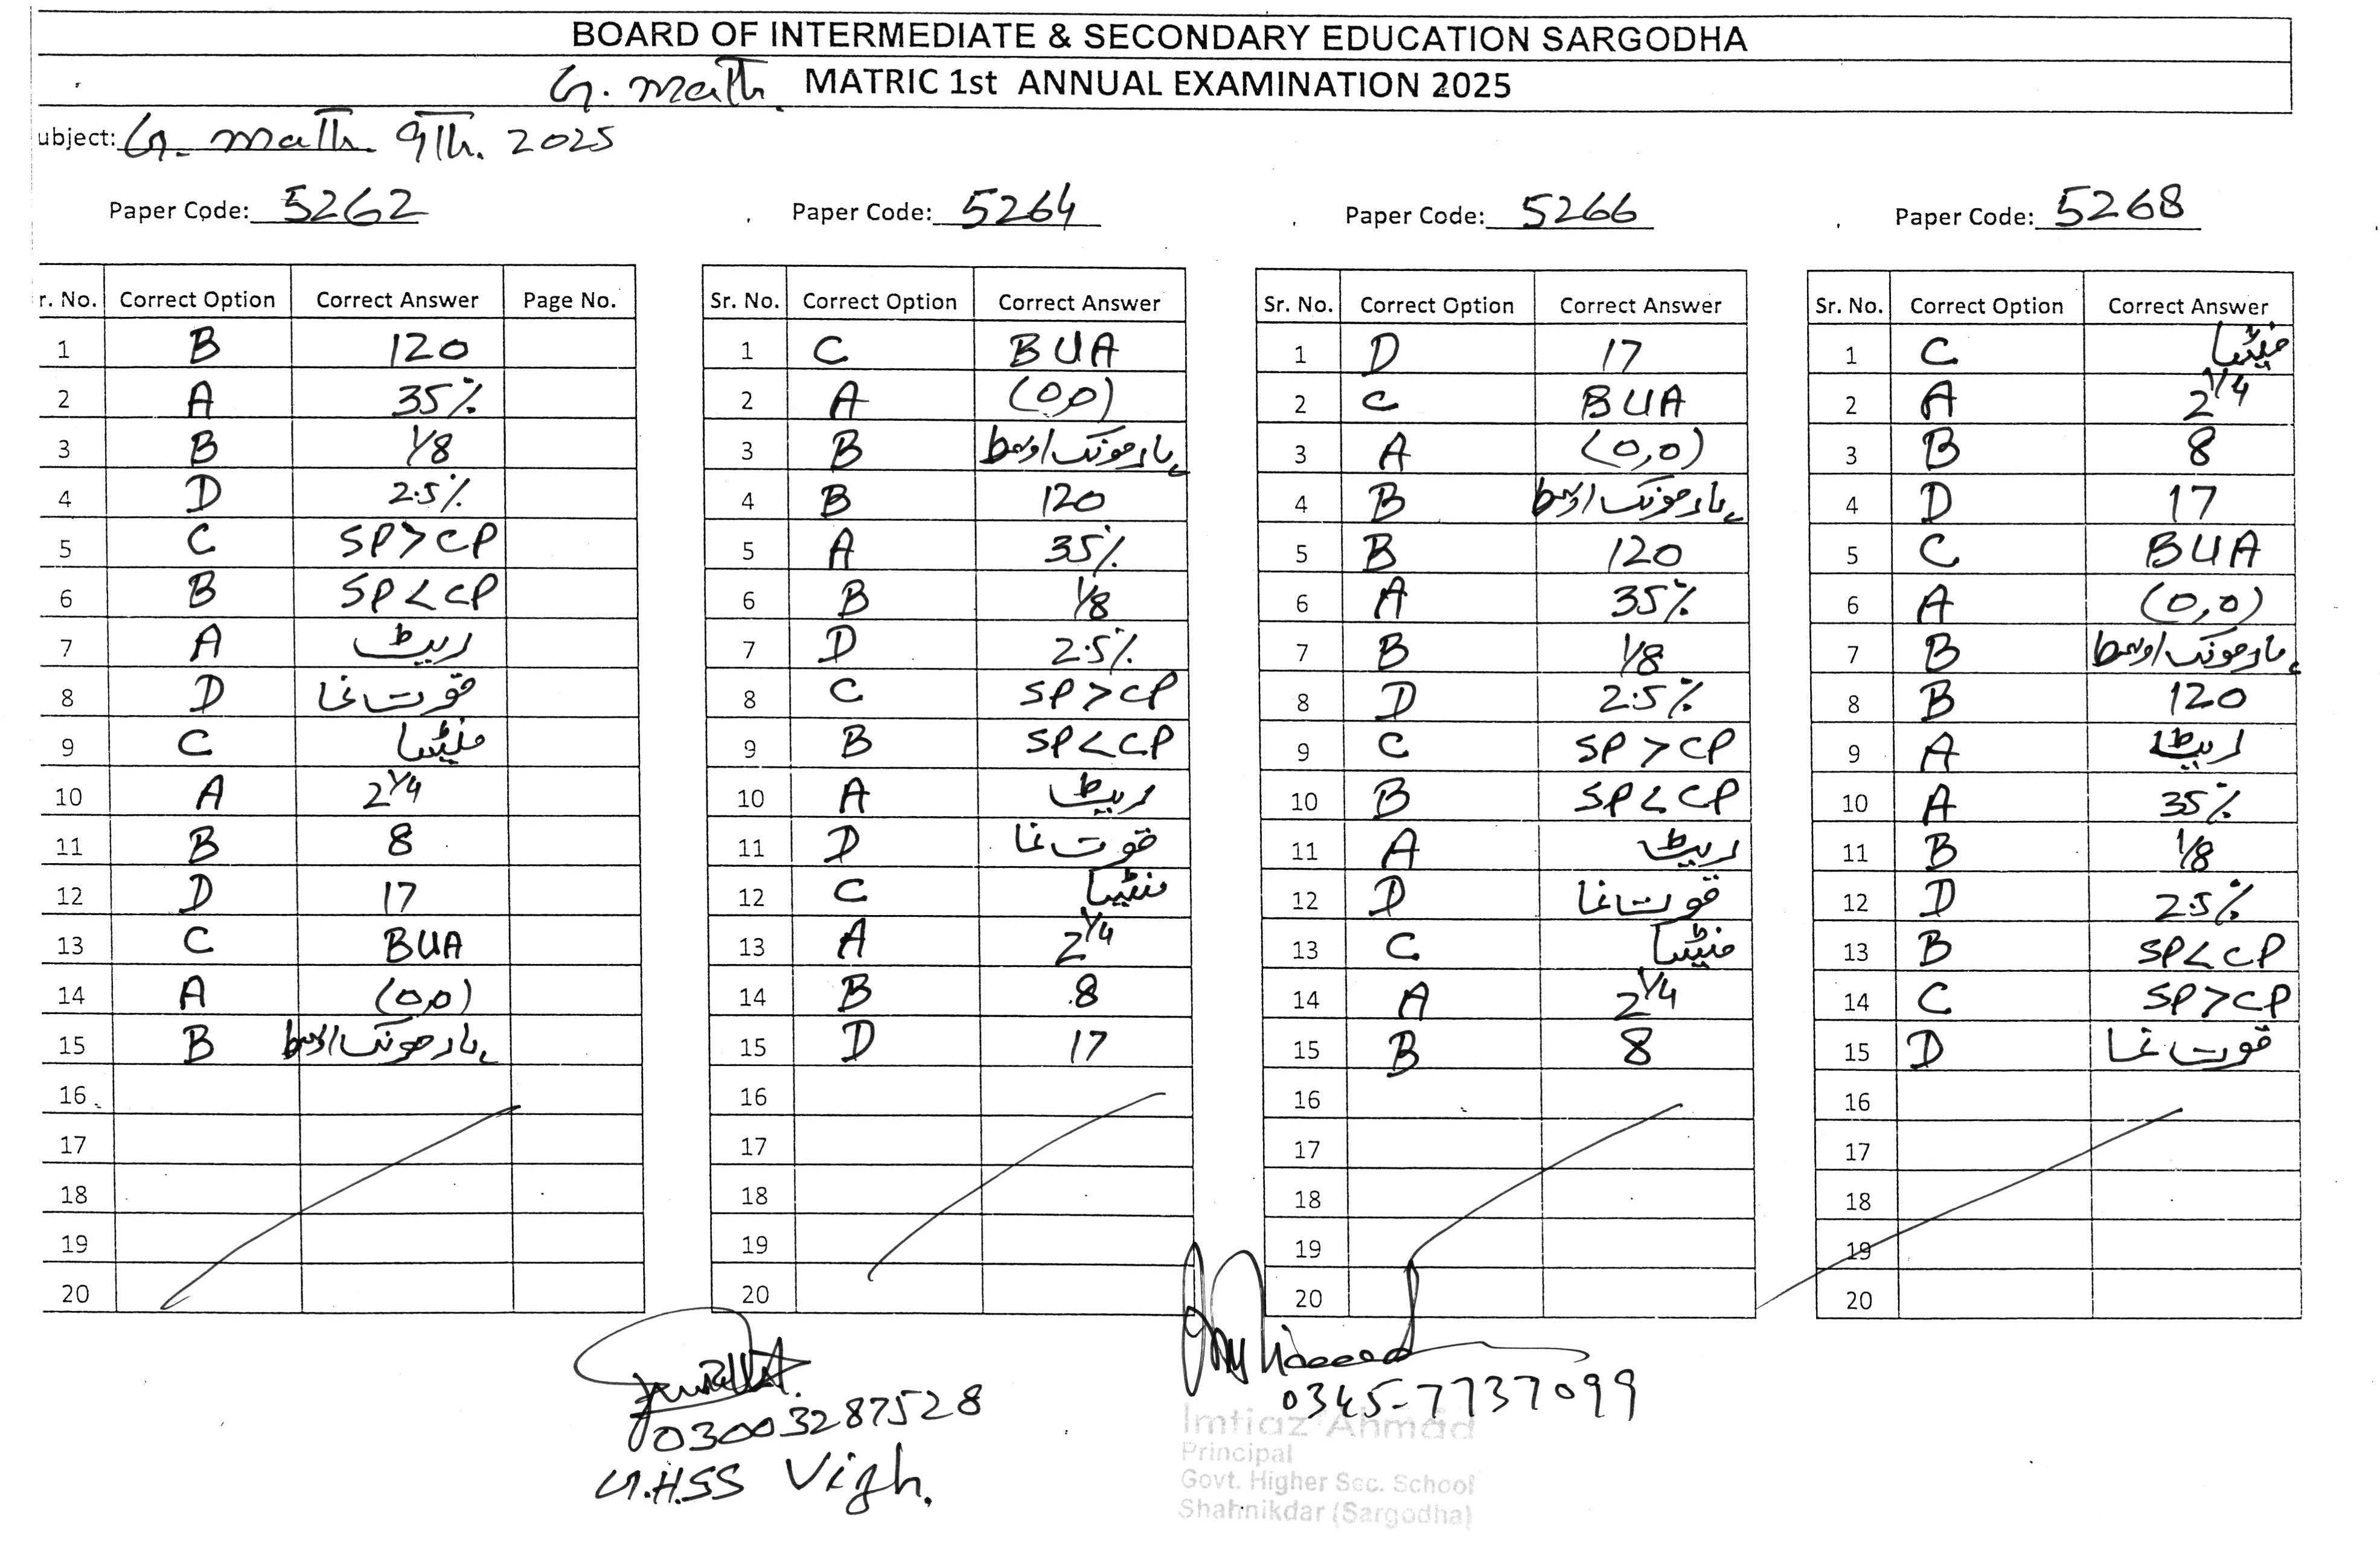 BOARD OF INTERMEDIATE & SECONDARY EDUCATION SARGODHA
G. math. MATRIC 1st ANNUAL EXAMINATION 2025
ubject: G. math. 9Th. 2025
Paper Code: 5262
r. No. Correct Option Correct Answer Page No.
1 B 120
2 A 35%
3 B 1/8
4 D 2.5%
5 C SP>CP
6 B SP<CP
7 A ریٹ
8 D قوت نما
9 C مینٹیسا
10 A 2^1/4
11 B 8
12 D 17
13 C BUA
14 A (0,0)
15 B
16
17
18
19
20
Paper Code: 5264
Sr. No. Correct Option Correct Answer
1 C BUA
2 A (0,0)
3 B
4 B 120
5 A 35%
6 B 1/8
7 D 2.5%
8 C SP>CP
9 B SP<CP
10 A ریٹ
11 D قوت نما
12 C مینٹیسا
13 A 2^1/4
14 B 8
15 D 17
16
17
18
19
20
Paper Code: 5266
Sr. No. Correct Option Correct Answer
1 D 17
2 C BUA
3 A (0,0)
4 B
5 B 120
6 A 35%
7 B 1/8
8 D 2.5%
9 C SP>CP
10 B SP<CP
11 A ریٹ
12 D قوت نما
13 C مینٹیسا
14 A 2^1/4
15 B 8
16
17
18
19
20
Paper Code: 5268
Sr. No. Correct Option Correct Answer
1 C مینٹیسا
2 A 2^1/4
3 B 8
4 D 17
5 C BUA
6 A (0,0)
7 B
8 B 120
9 A ریٹ
10 A 35%
11 B 1/8
12 D 2.5%
13 B SP<CP
14 C SP>CP
15 D قوت نما
16
17
18
19
20
03003287528
G.H.SS Vigh.
0345-7737099
Imtiaz Ahmad
Principal
Govt. Higher Sec. School
Shahnikdar (Sargodha)